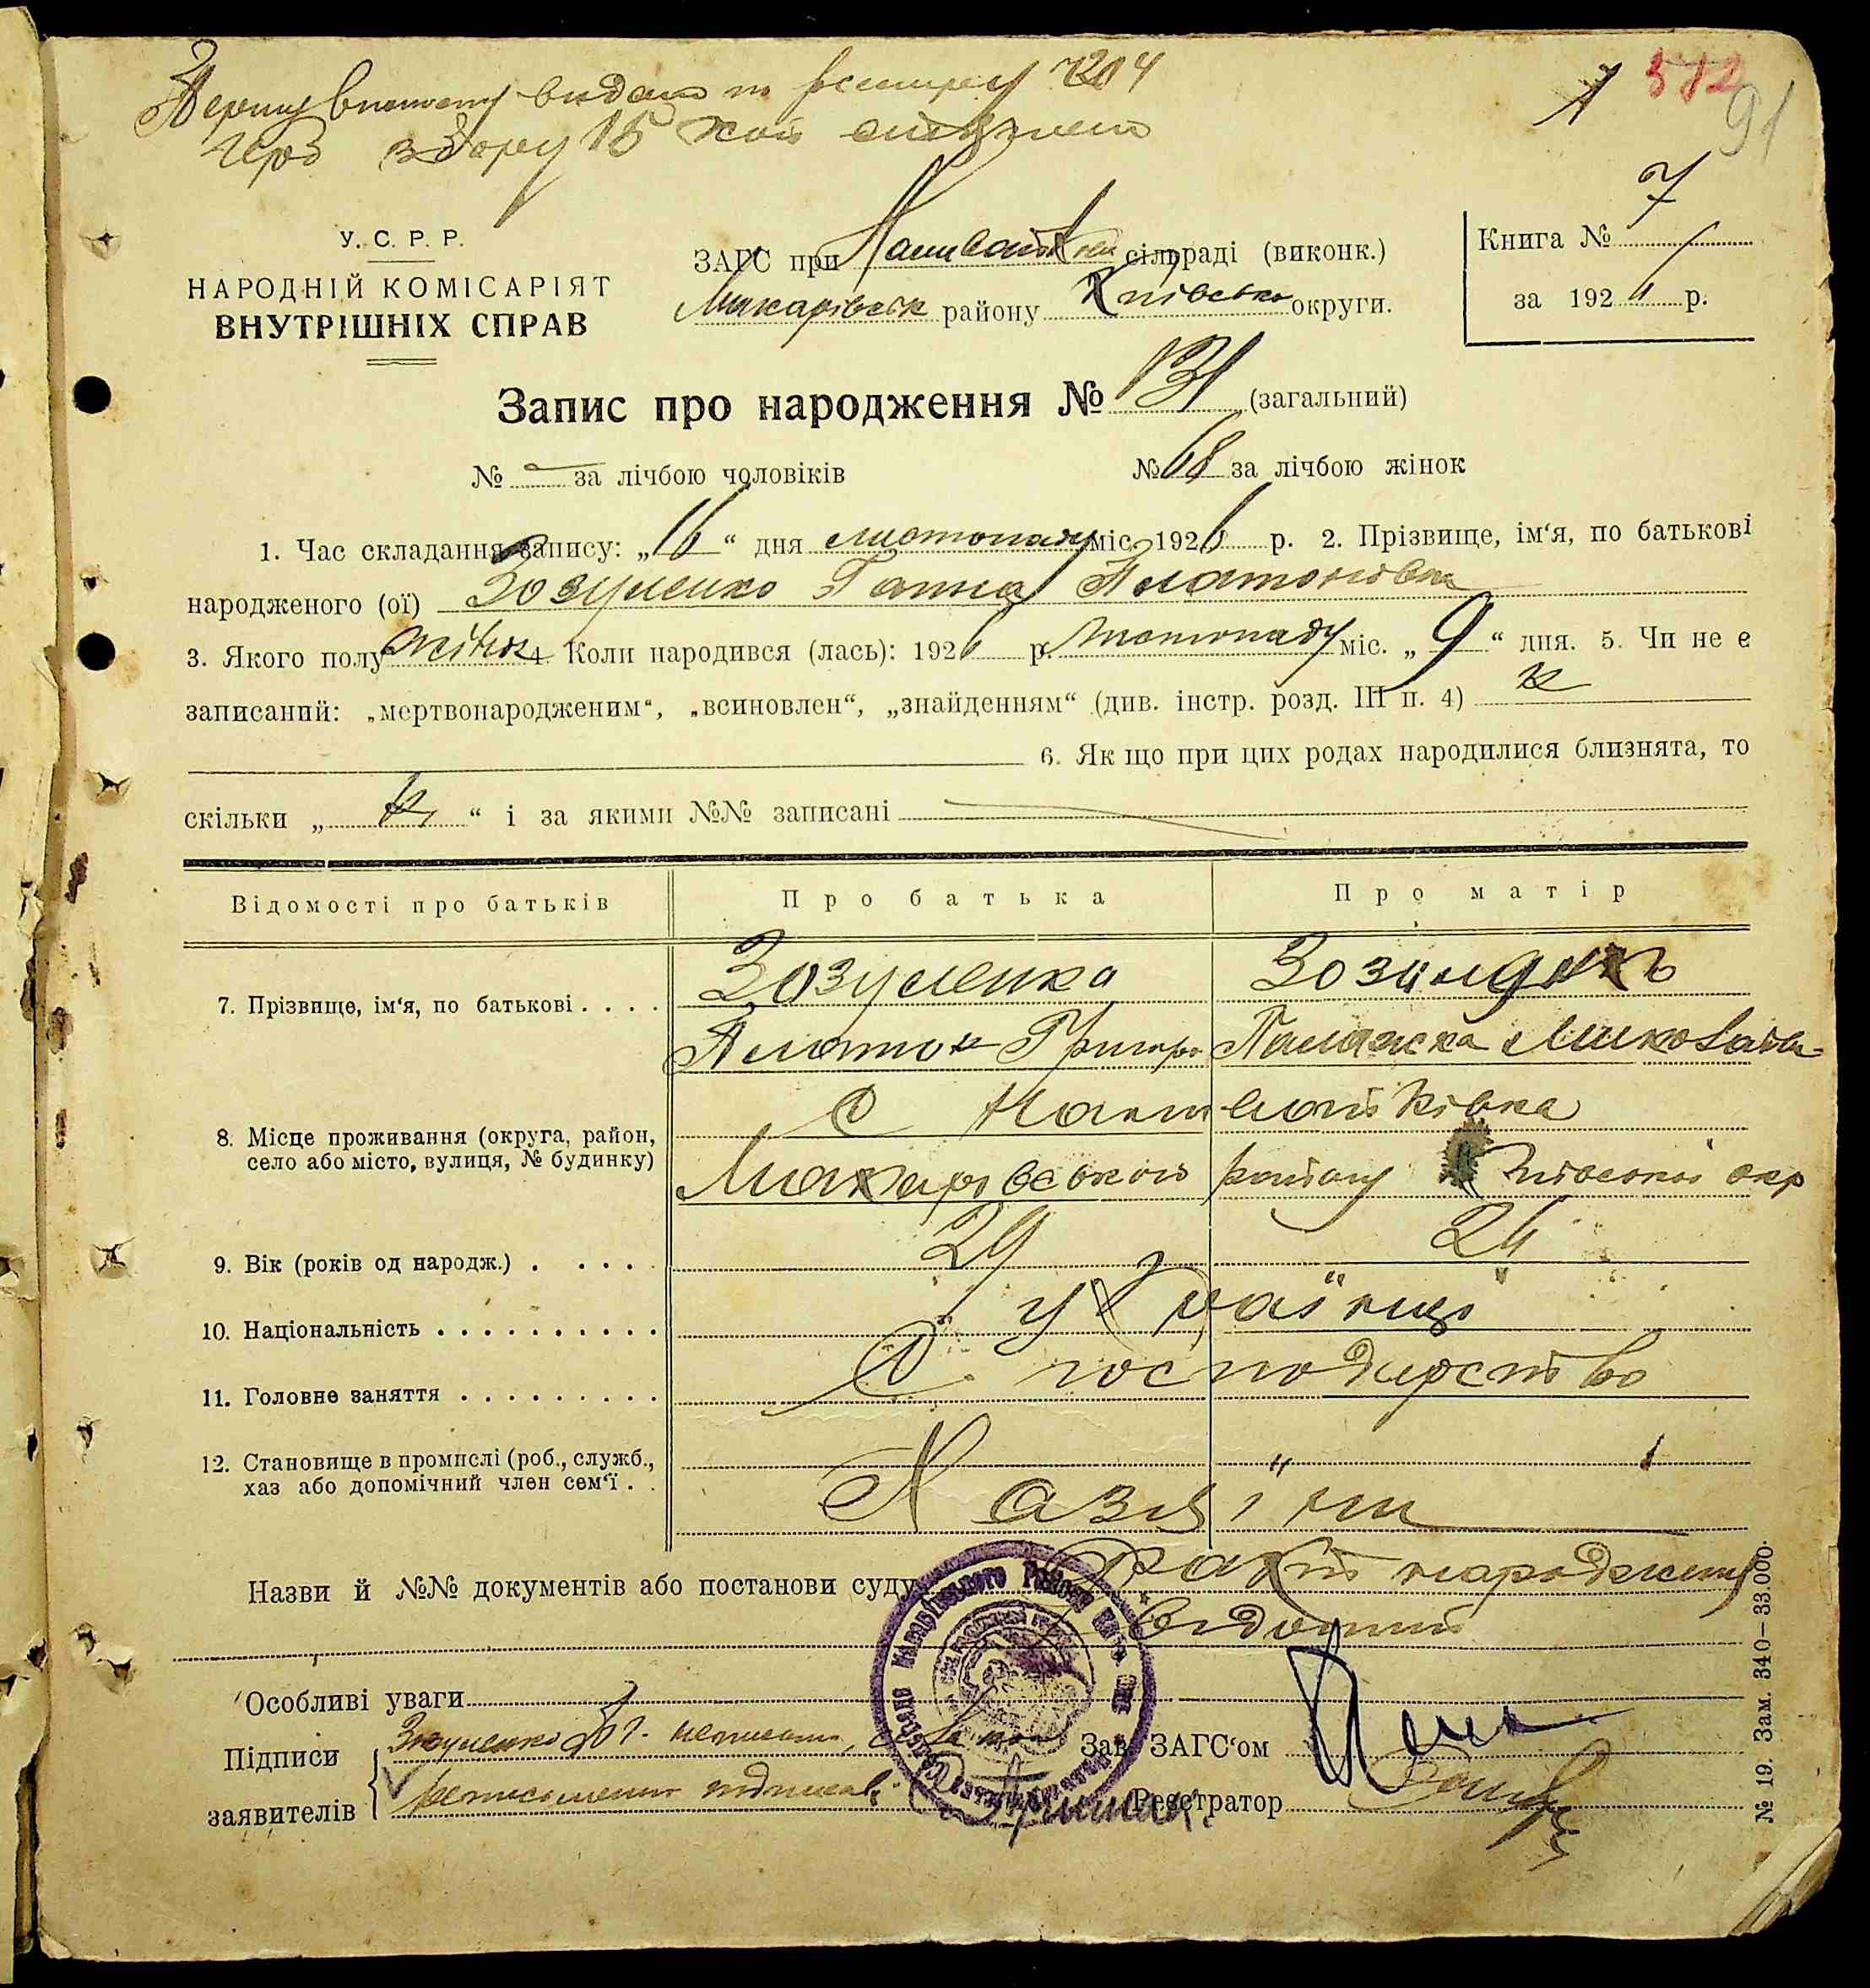 Першу виписку видано по реєстру 204
через збору 15 коп
572
91
У. С. Р. Р.
НАРОДНІЙ КОМІСАРІЯТ
ВНУТРІШНІХ СПРАВ
ЗАГС при Наливайків сільраді (виконк.)
Макарівськ району Київсько округи.
Книга № 7
за 1926 р.
Запис про народження № 131 (загальний)
№ — за лічбою чоловіків
№ 68 за лічбою жінок
1. Час складання запису: „16“ дня листопаду міс. 1926 р. 2. Прізвище, ім‘я, по батькові
народженого (ої) Зозуленко Ганна Платоновна
3. Якого полу жіноч 4. Коли народився (лась): 1926 р. листопаду міс. „9“ дня. 5. Чи не є
записаний: „мертвонародженим“, „всиновлен“, „знайденням“ (див. інстр. розд. III п. 4) н
6. Як що при цих родах народилися близнята, то
скільки „ н “ і за якими №№ записані
Відомості про батьків
Про батька
Про матір
7. Прізвище, ім‘я, по батькові . . . .
Зозуленко
Платон Григоро
Палажка Миколаївн
8. Місце проживання (округа, район,
село або місто, вулиця, № будинку)
с Наливайківка
Макарівського району Київської окр
9. Вік (років од народж.) . . . . .
29
24
10. Національність . . . . . . . . . . .
українці
11. Головне заняття . . . . . . . . .
С. господарство
12. Становище в промислі (роб., служб.,
хаз або допомічний член сем‘ї . .
Хазяїни
Назви й №№ документів або постанови суду
факт народження
відомий
Особливі уваги
Підписи
заявителів
Зозуленко
неписьмен підписав
Зав. ЗАГС‘ом
Реєстратор
№ 19. Зам. 340–33.000.